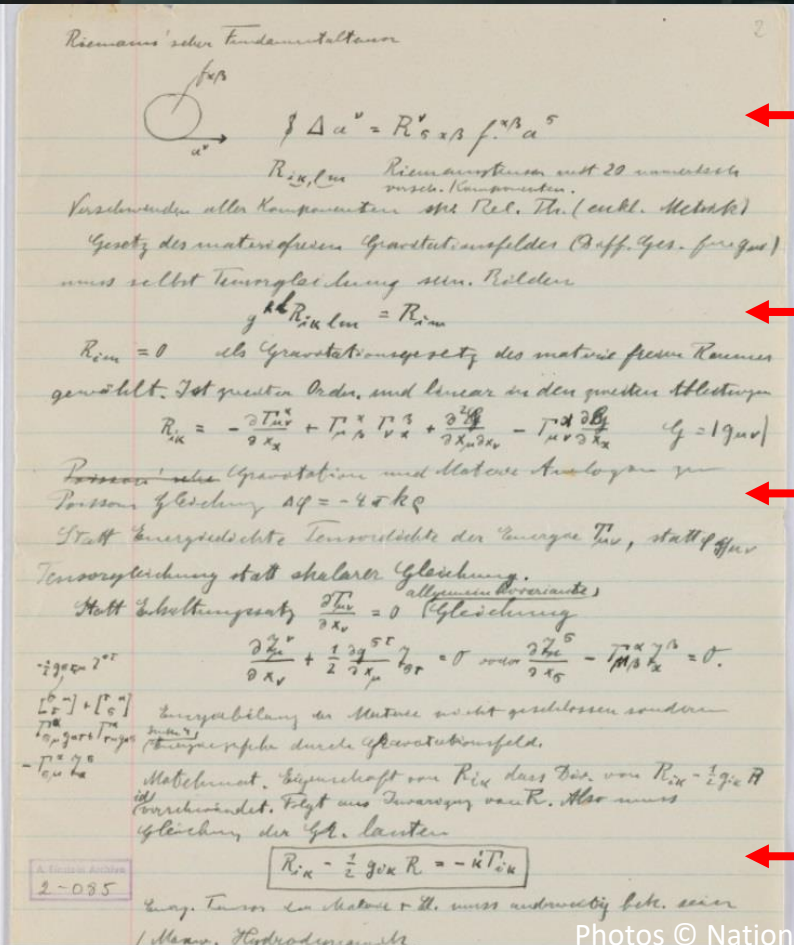 2
Riemann'scher Fundamentaltensor
f^αβ
a^ν
Δ a^ν = R^ν_σαβ f^αβ a^σ
R_iκ,lm Riemanntensor mit 20 numerisch
versch. Komponenten.
Verschwinden aller Komponenten spez Rel. Th. (eukl. Metrik)
Gesetz des materiefreien Gravitationsfeldes (Diff. Ges. für g_μν)
muss selbst Tensorgleichung sein. Bilden
g^κl R_iκlm = R_im
R_im = 0 als Gravitationsgesetz des materiefreien Raumes
gewählt. Ist zweiter Ordn. und linear in den zweiten Ableitungen
R_iκ = - ∂Γ^α_μν/∂x_α + Γ^α_μβ Γ^β_να + ∂²lg/∂x_μ∂x_ν - Γ^α_μν ∂lg/∂x_α G = |g_μν|
Poisson'sche Gravitation und Materie Analogon zur
Poisson Gleichung Δφ = -4πkρ
Statt Energiedichte Tensordichte der Energie T_μν, statt φ g_μν
Tensorgleichung statt skalarer Gleichung.
allgemein kovariante
Statt Erhaltungssatz ∂T_μν/∂x_ν = 0 Gleichung
∂𝔗_μ^ν/∂x_ν + 1/2 ∂g^στ/∂x_μ 𝔗_στ = 0 oder ∂𝔗_μ^σ/∂x_σ - Γ^α_μβ 𝔗_α^β = 0.
Energiebilanz der Materie nicht geschlossen sondern
durch Gravitationsfeld.
Mathemat. Eigenschaft von R_iκ dass Div. von R_iκ - 1/2 g_iκ R
id. verschwindet. Folgt aus Invarianz von R. Also muss
Gleichung der Gr. lauten
R_iκ - 1/2 g_iκ R = -κT_iκ
A. Einstein Archives
2-085
Energ. Tensor der Materie + El. muss anderweitig bek. sein
(Maxw. Hydrodynamik
Photos © Nation